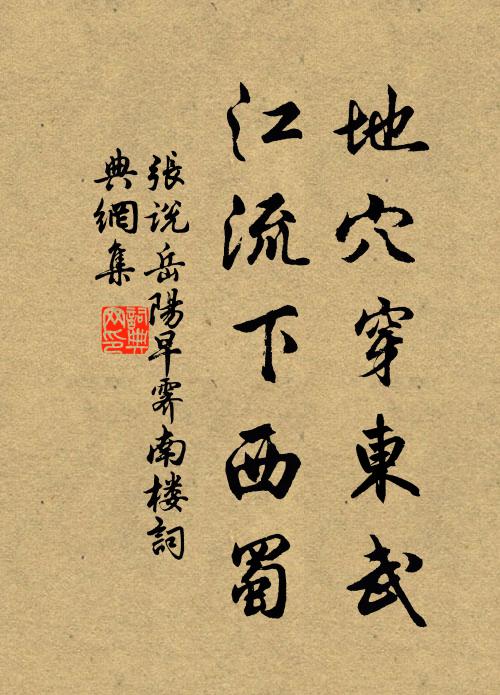 地穴穿東武
江流下西蜀
張説岳陽早霽南楼詞
典網集
詞典
网印